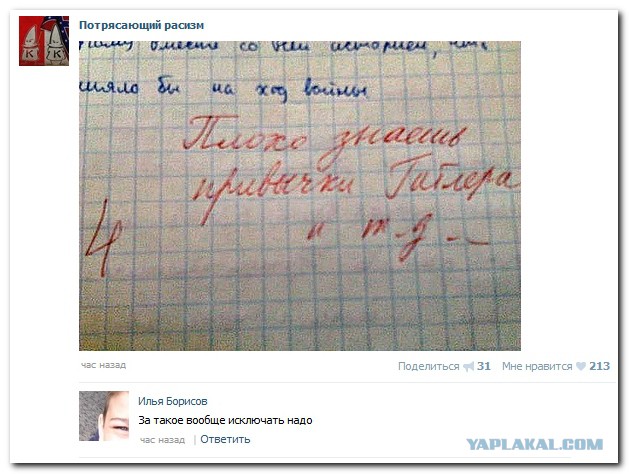 Потрясающий расизм
вместе со всей историей,
на ход войны
Плохо знаешь
привычки Гитлера
4
и т-д --
час назад
Поделиться 31 Мне нравится 213
Илья Борисов
За такое вообще исключать надо
час назад | Ответить
YAPLAKAL.COM
K K